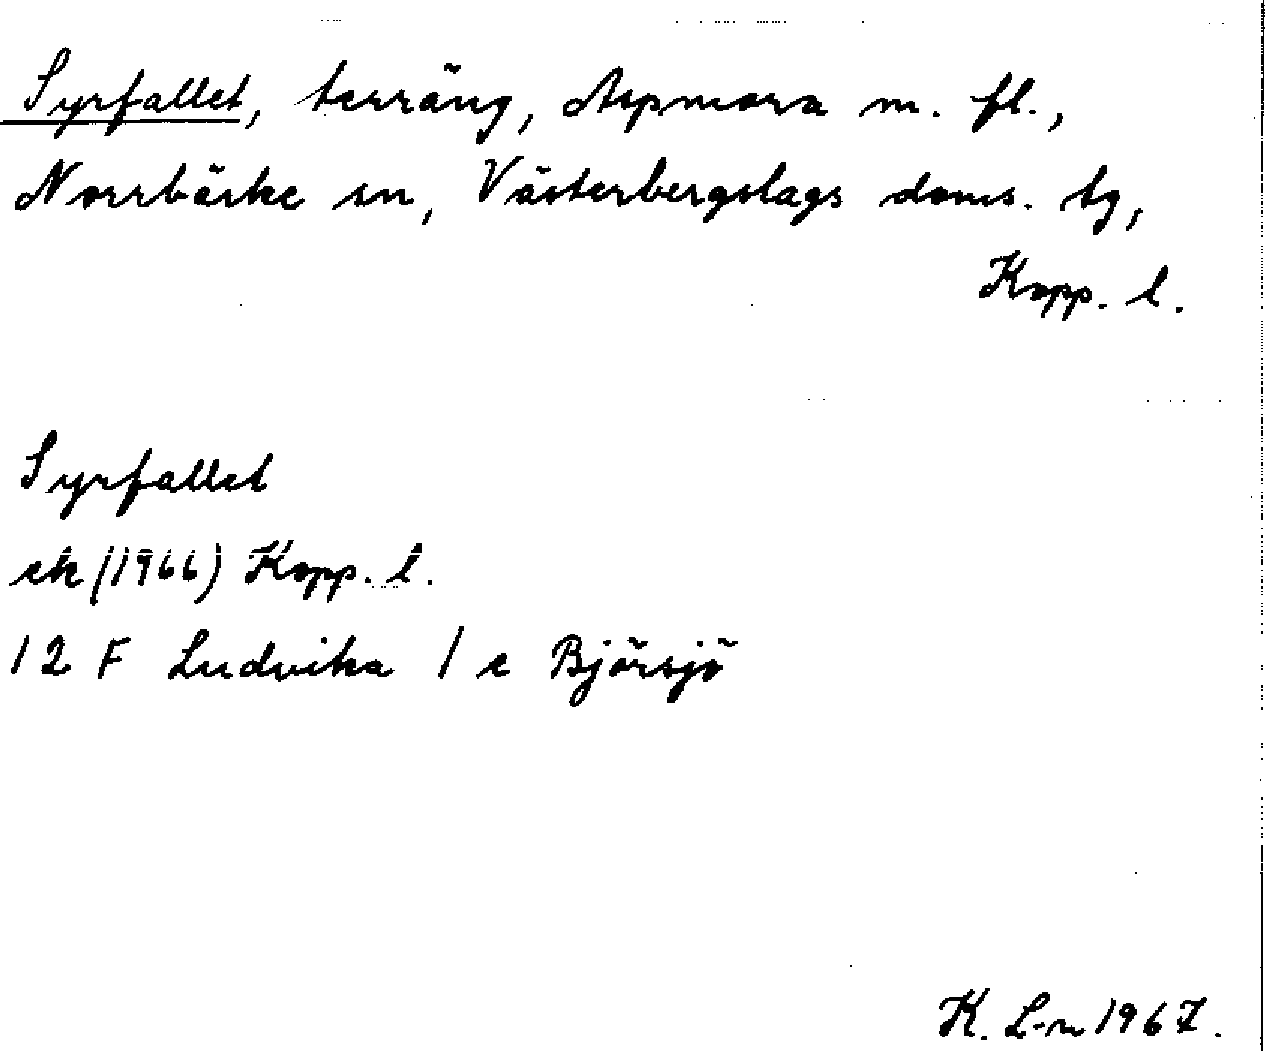 Syrfallet, terräng, Aspmora m. fl.,
Norrbärke sn, Västerbergslags doms. tg,
Kopp. l.
Syrfallet
ek (1966) Kopp. l.
12 F Ludvika 1 e Björsjö
K. L-n 1967.